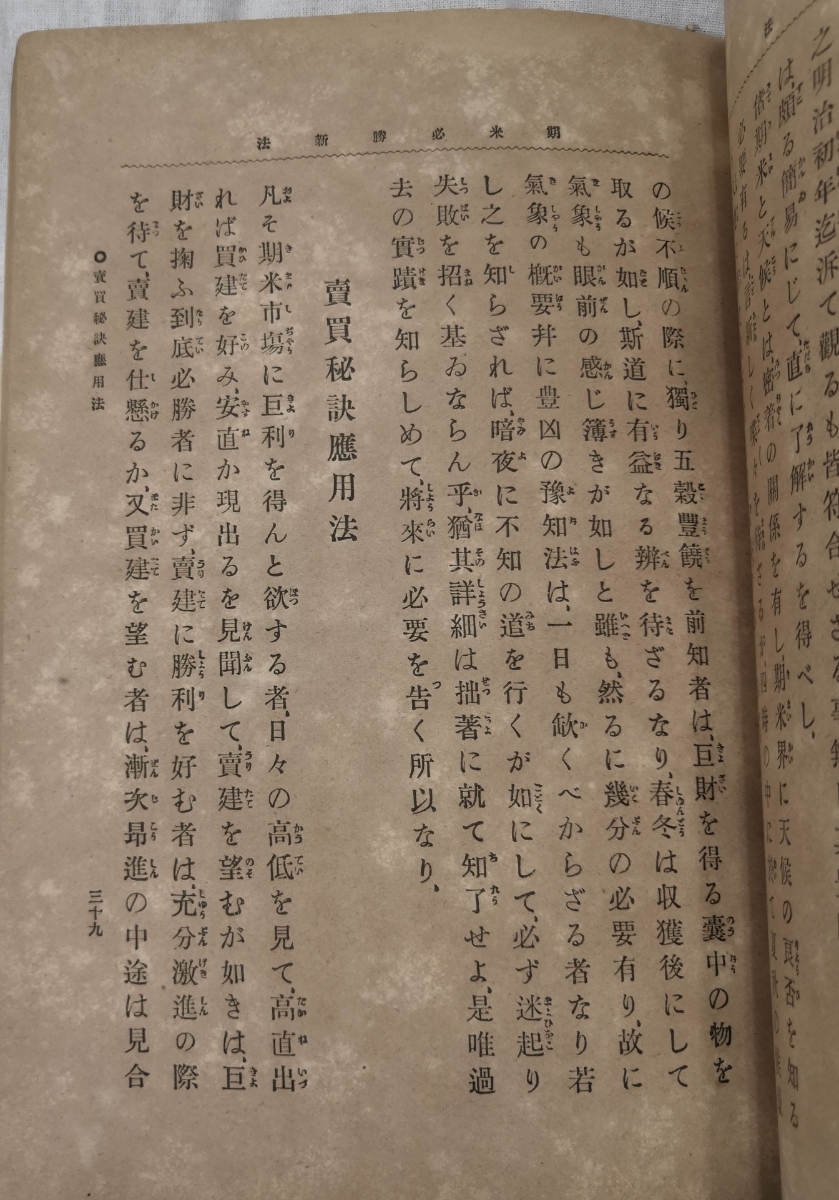 之明治初年迄泝て觀るも皆符合せざる事無
は、頗る簡易にじて、直に了解するを得べし、
偖期米と天候とは、密着の關係を有し、期米界に天候の良否を知る
期米必勝新法
の候不順の際に、獨り五穀豐饒を前知者は、巨財を得る囊中の物を
取るが如し、斯道に有益なる辨を待ざるなり、春冬は収獲後にして
氣象も眼前の感じ簿きが如しと雖も、然るに幾分の必要有り、故に
氣象の槪要幷に豊凶の豫知法は、一日も缺くべからざる者なり若
し之を知らざれば、暗夜に不知の道を行くが如にして、必ず迷起り
失敗を招く基ゐならん乎、猶其詳細は拙著に就て知了せよ、是唯過
去の實蹟を知らしめて、將來に必要を告く所以なり、
賣買秘訣應用法
凡そ期米市塲に巨利を得んと欲する者、日々の高低を見て、高直出
れば買建を好み、安直か現出るを見聞して、賣建を望むが如きは、巨
財を掬ふ到底必勝者に非ず、賣建に勝利を好む者は、充分激進の際
を待て、賣建を仕懸るか、又買建を望む者は、漸次昻進の中途は見合
○賣買秘訣應用法
三十九